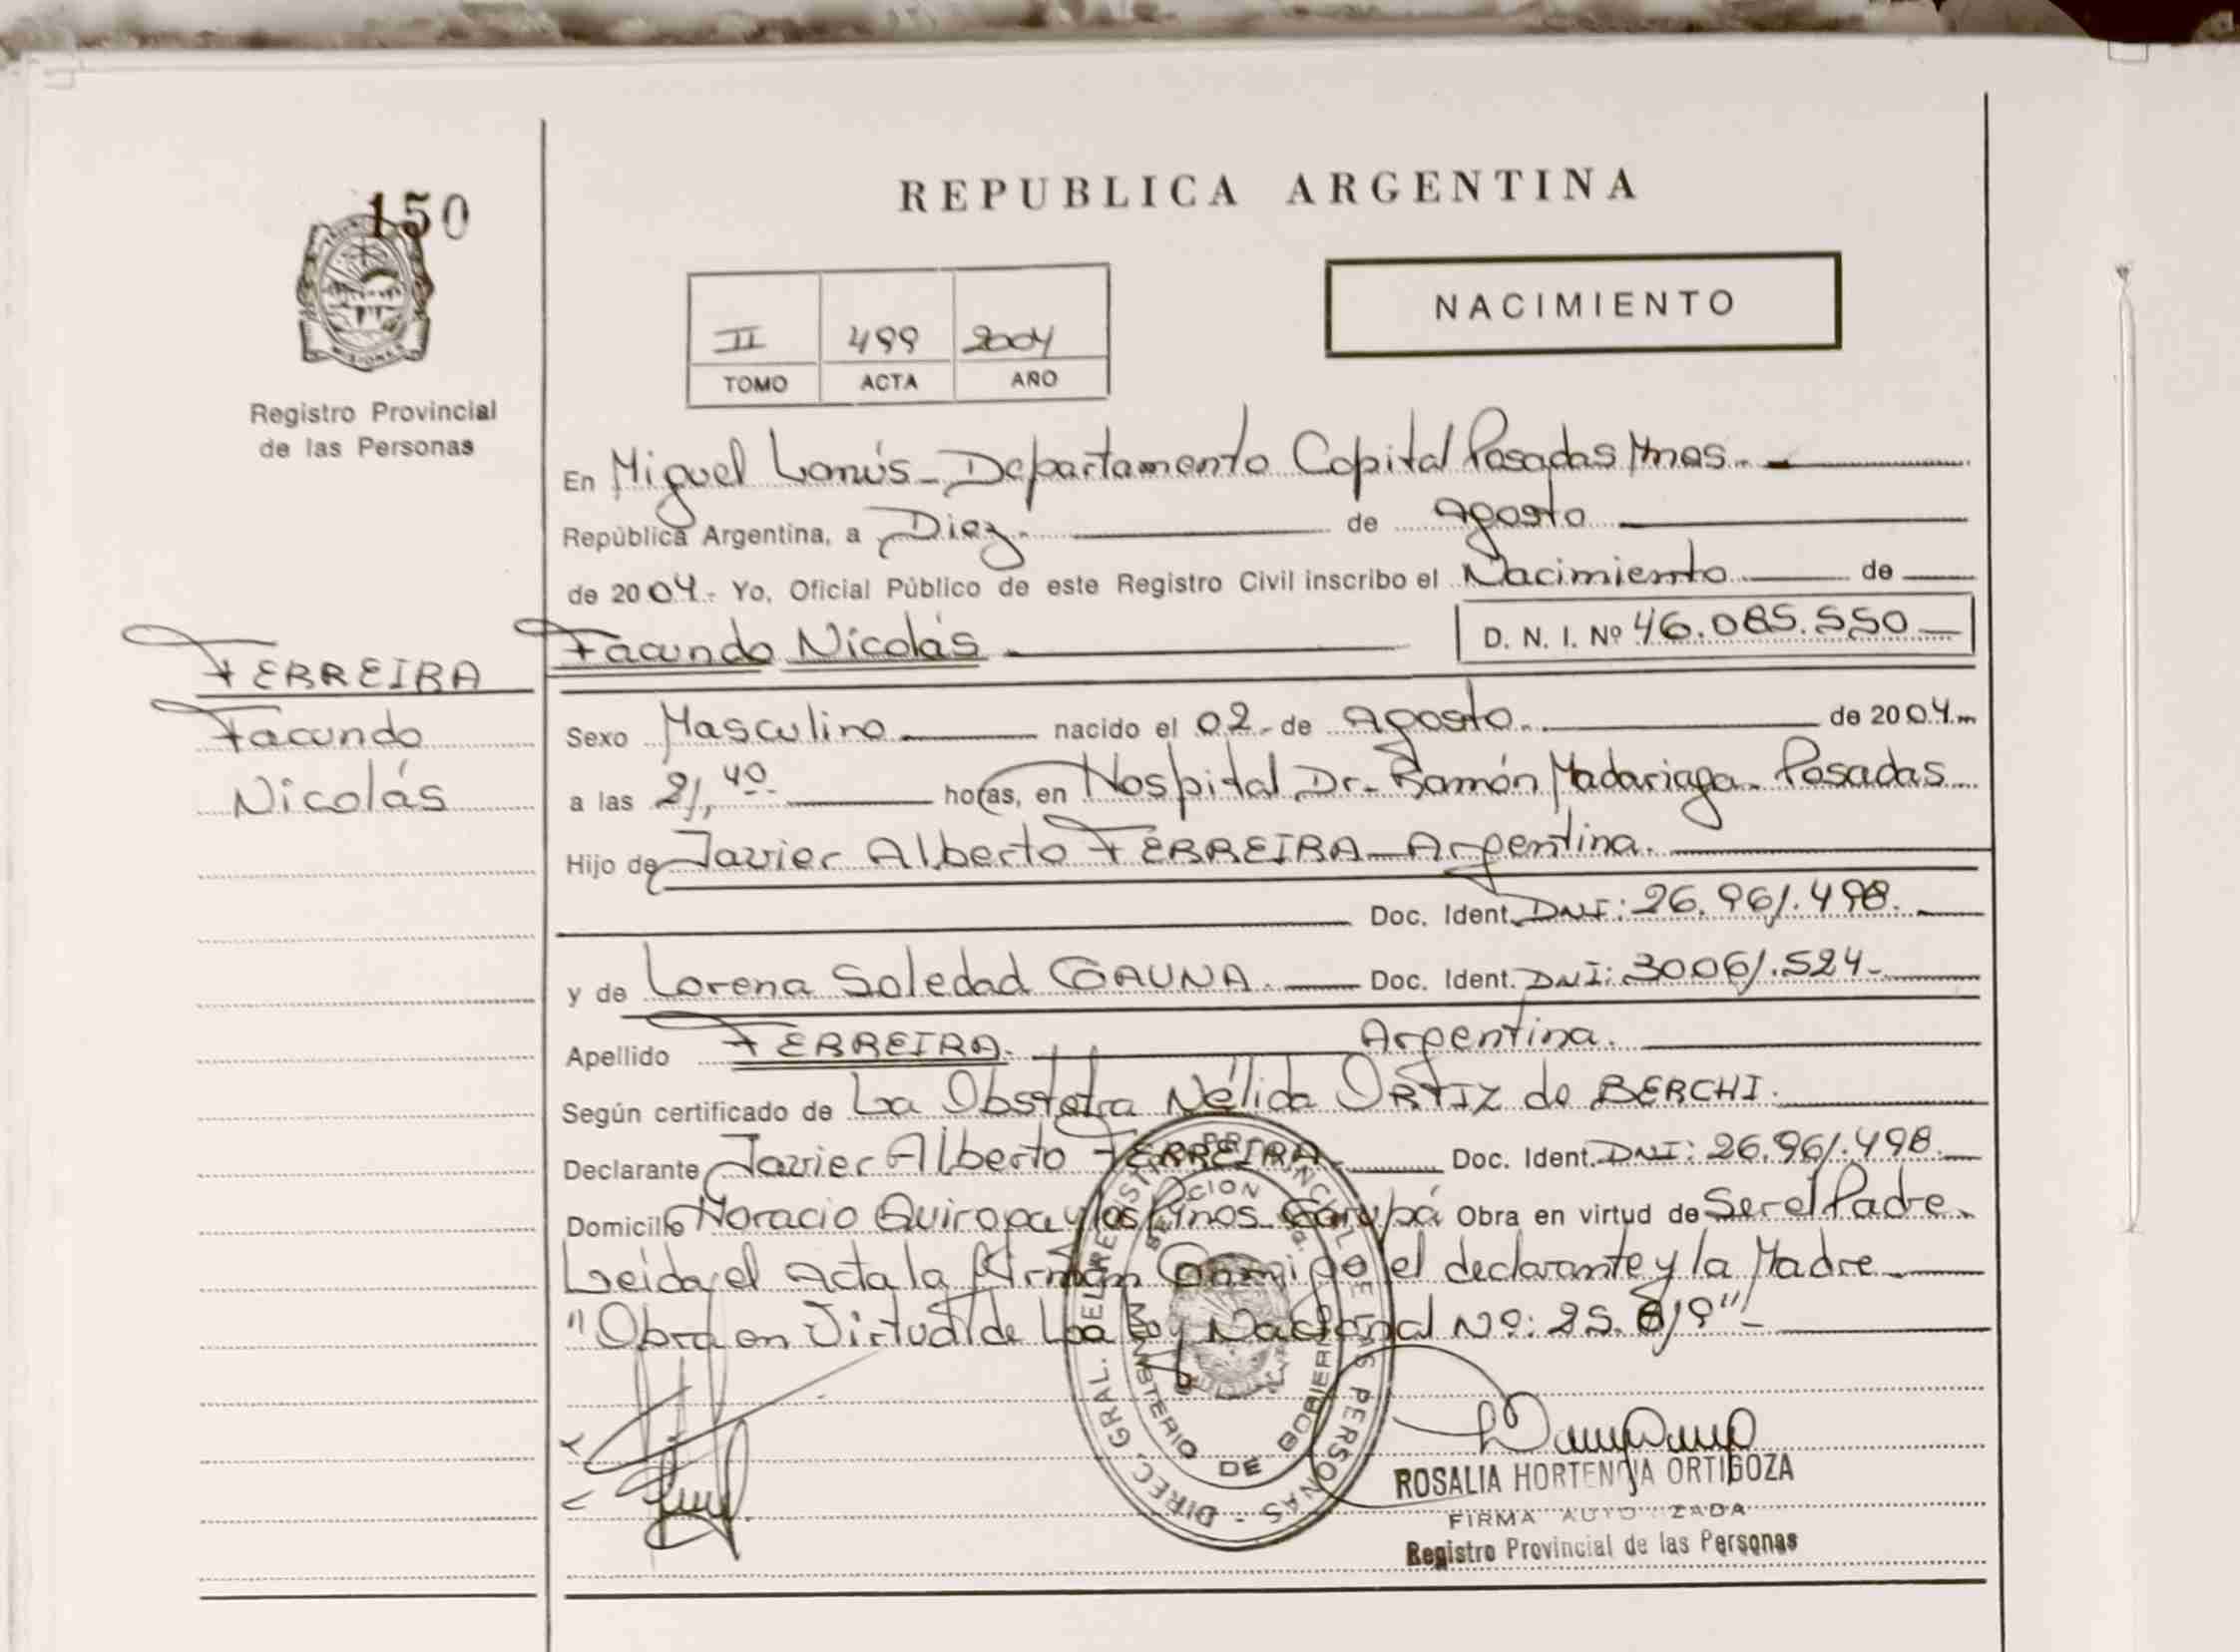 150
MISIONES
Registro Provincial
de las Personas
FERREIRA
Facundo
Nicolás
REPUBLICA ARGENTINA
NACIMIENTO
II 499 2004
TOMO ACTA AÑO
En Miguel Lanús - Departamento Capital Posadas Mnes. -
República Argentina, a Diez. de Agosto
de 2004.- Yo, Oficial Público de este Registro Civil inscribo el Nacimiento de
Facundo Nicolás D. N. I. Nº 46.085.550
Sexo Masculino nacido el 02 - de Agosto. de 2004.
a las 21,40 horas, en Hospital Dr. Ramón Madariaga - Posadas
Hijo de Javier Alberto FERREIRA - Argentina.
Doc. Ident. DNI: 26.961.498.
y de Lorena Soledad GAUNA. Doc. Ident. DNI: 30061.524-
Apellido FERREIRA. Argentina.
Según certificado de La Obstetra Nélida ORTIZ de BERCHI.
Declarante Javier Alberto FERREIRA Doc. Ident. DNI: 26.961.498.
Domicilio Horacio Quiroga y los Pinos Garupá Obra en virtud de Ser el Padre.
Leida el Acta la Firman Conmigo el declarante y la Madre
"Obra en Virtud de La Ley Nacional Nº: 25.819"-
DIREC. GRAL. DEL REGISTRO PROVINCIAL DE LAS PERSONAS -
MINISTERIO DE GOBIERNO
ROSALIA HORTENCIA ORTIGOZA
FIRMA AUTORIZADA
Registro Provincial de las Personas